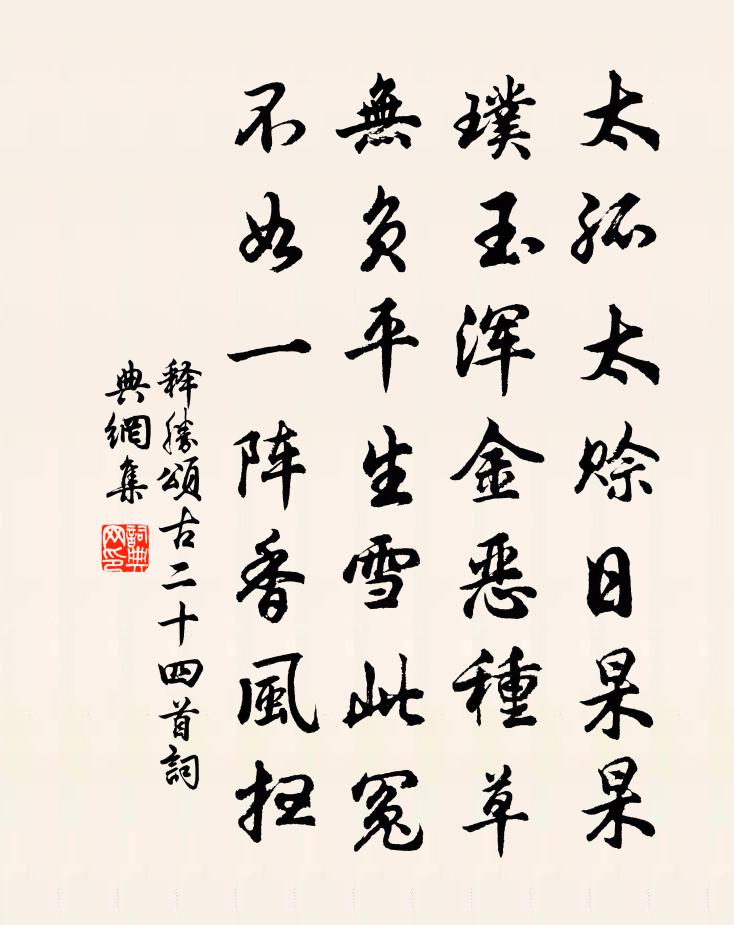 太孤太赊日杲杲
璞玉浑金恶種草
無负平生雪此冤
不如一阵香風扫
释勝頌古二十四首詞
典網集
詞典网印